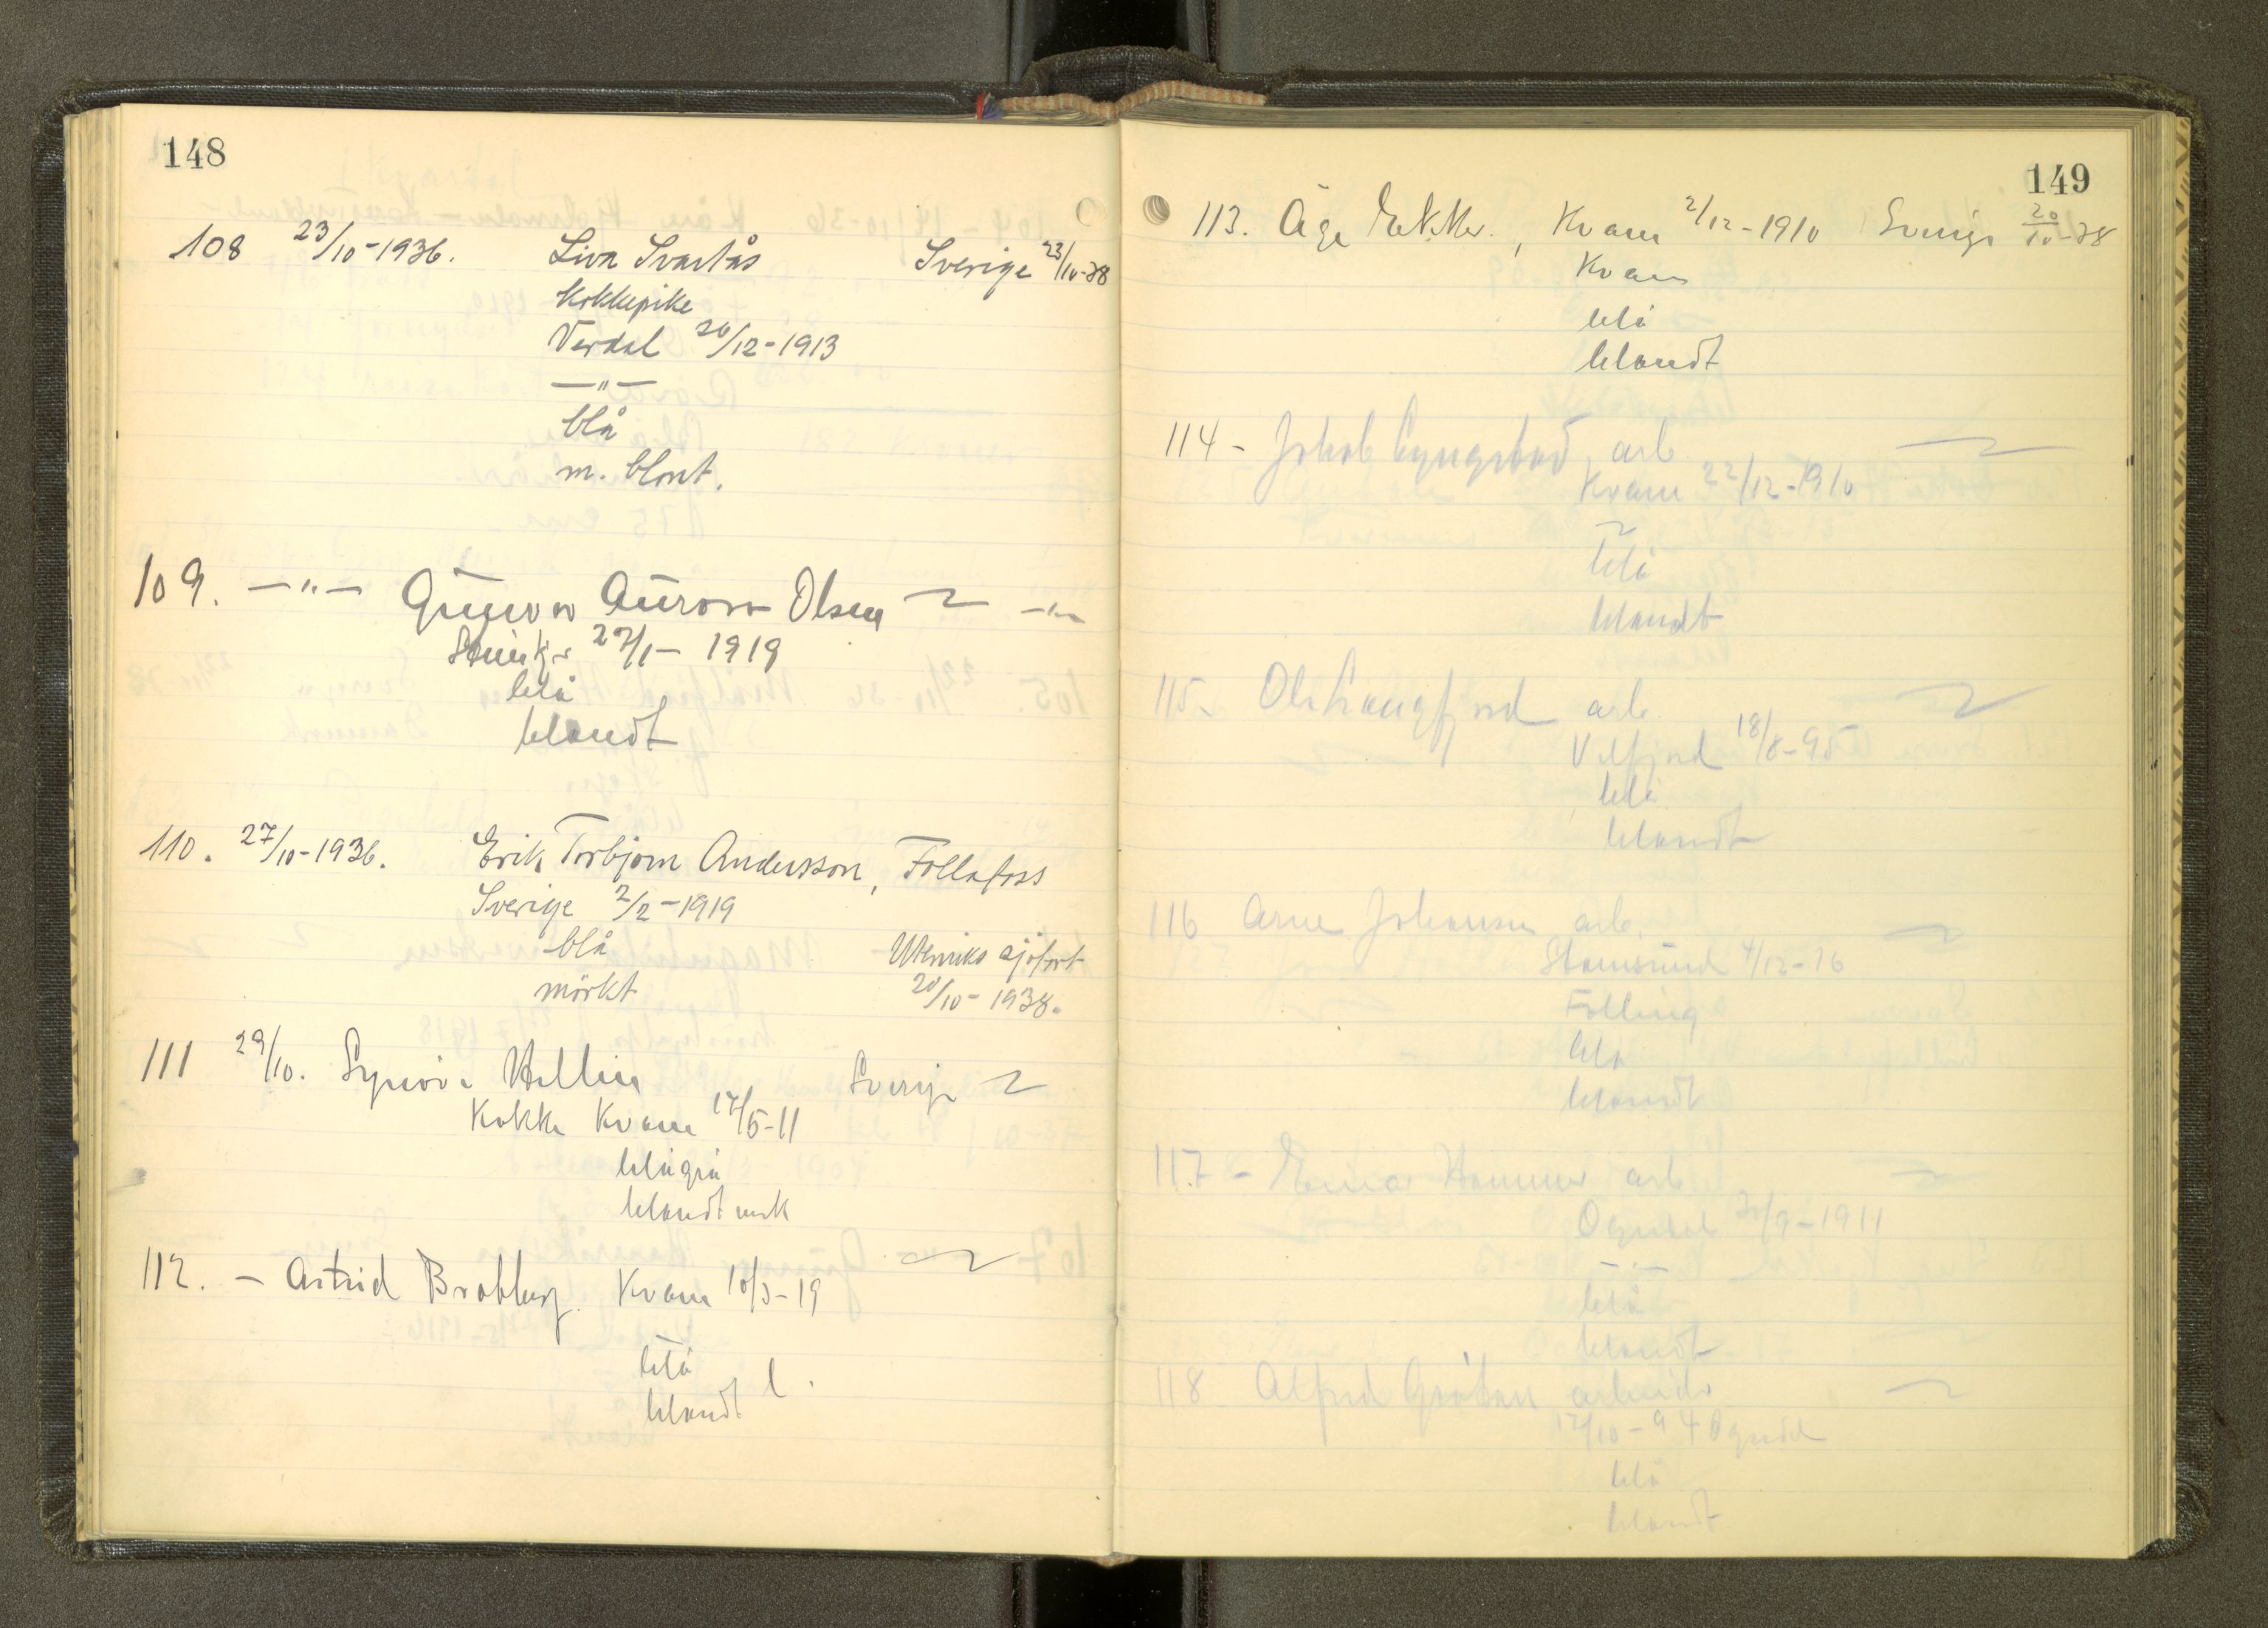 148
108 23/10-1936. Liva Svartås Sverige 23/10-38
Kokkepike
Verdal 20/12-1913
—"—
blå
m. blont.
109. —"— Aurora Olsen —"—
27/1- 1919
blå
blondt
110. 27/10-1936. Erik Torbjorn Andersson, Follafoss
Sverige 2/2-1919
blå Utenriks sjöfart
mörkt 20/10-1938.
111 29/10. Synöve Sverige
Kokke Kvam 17/5-11
blågrå
blondt mrk
112. - Astrid Kvam 10/3-19
blå
blondt l.
149
113. Åge Kvam 2/12-1910 Sverige 20/10-38
Kvam
blå
blondt
114- Jakob arb
Kvam 22/12-1910
blå
blondt
115. Ola arb
18/8-95
blå
blondt
116 Arne Johansen arb.
Stamsund 4/12-16
Følling
blå
blondt
117- Hammer arb
Ogndal /9-1911
—"—
blå
blondt
118 Alfred arbeids
17/10-94 Ogndal
blå
blondt